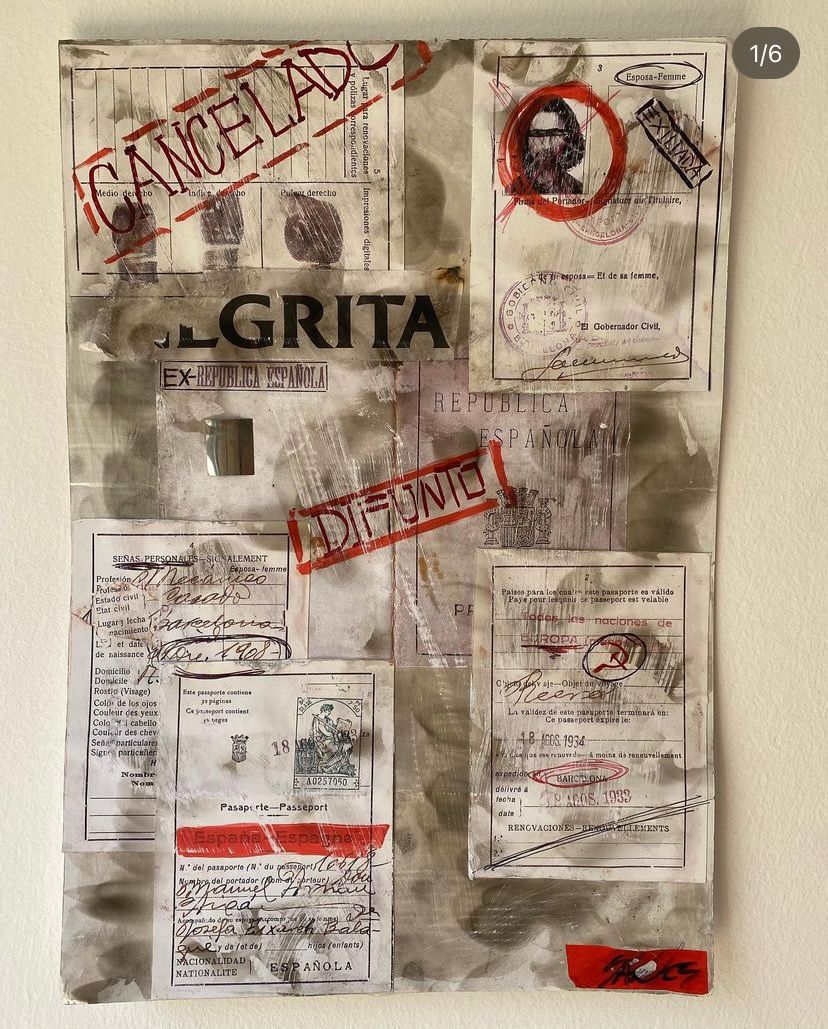 1/6
CANCELADO
Lugar para renovaciones
y pólizas correspondientes
5
Impresiones digitales
Medio derecho
Indice derecho
Pulgar derecho
3
Esposa-Femme
EXILIADA
Firma del Portador—Signature du Titulaire,
BARCELONA
de su esposa—Et de sa femme,
GOBIERNO CIVIL
El Gobernador Civil,
EGRITA
EX-REPUBLICA ESPAÑOLA
REPUBLICA
ESPAÑOLA
DIFUNTO
4
SEÑAS PERSONALES—SIGNALEMENT
Esposa-femme
Profesión
Mecánico
Estado civil
Etat civil
Casado
Lugar y fecha
nacimiento
Barcelona
et date
de naissance
1908
Domicilio
Domicile
Rostro (Visage)
Color de los ojos
Couleur des yeux
cabello
Couleur des chev
Señas particulares
Signes particulier
Nombr
Nom
Este pasaporte contiene
32 páginas
Ce passeport contient
32 pages
18
A0257050
Pasaporte—Passeport
España-Espagne
N.º del pasaporte (N.º du passeport)
Nombre del portador (Nom du porteur)
D. Manuel
Acompañado de su esposa
Josefa
y de (et de)
hijos (enfants)
NACIONALIDAD
NATIONALITE
ESPAÑOLA
2
Países para los cuales este pasaporte es válido
Pays pour lesquels ce passeport est valable
Todas las naciones de
EUROPA
Objeto del viaje—Objet du voyage
Recreo
La validez de este pasaporte terminará en:
Ce passeport expire le:
18 AGOS. 1934
à moins de renouvellement
expedido
BARCELONA
délivré à
fecha
date
18 AGOS. 1933
RENOVACIONES—RENOUVELLEMENTS